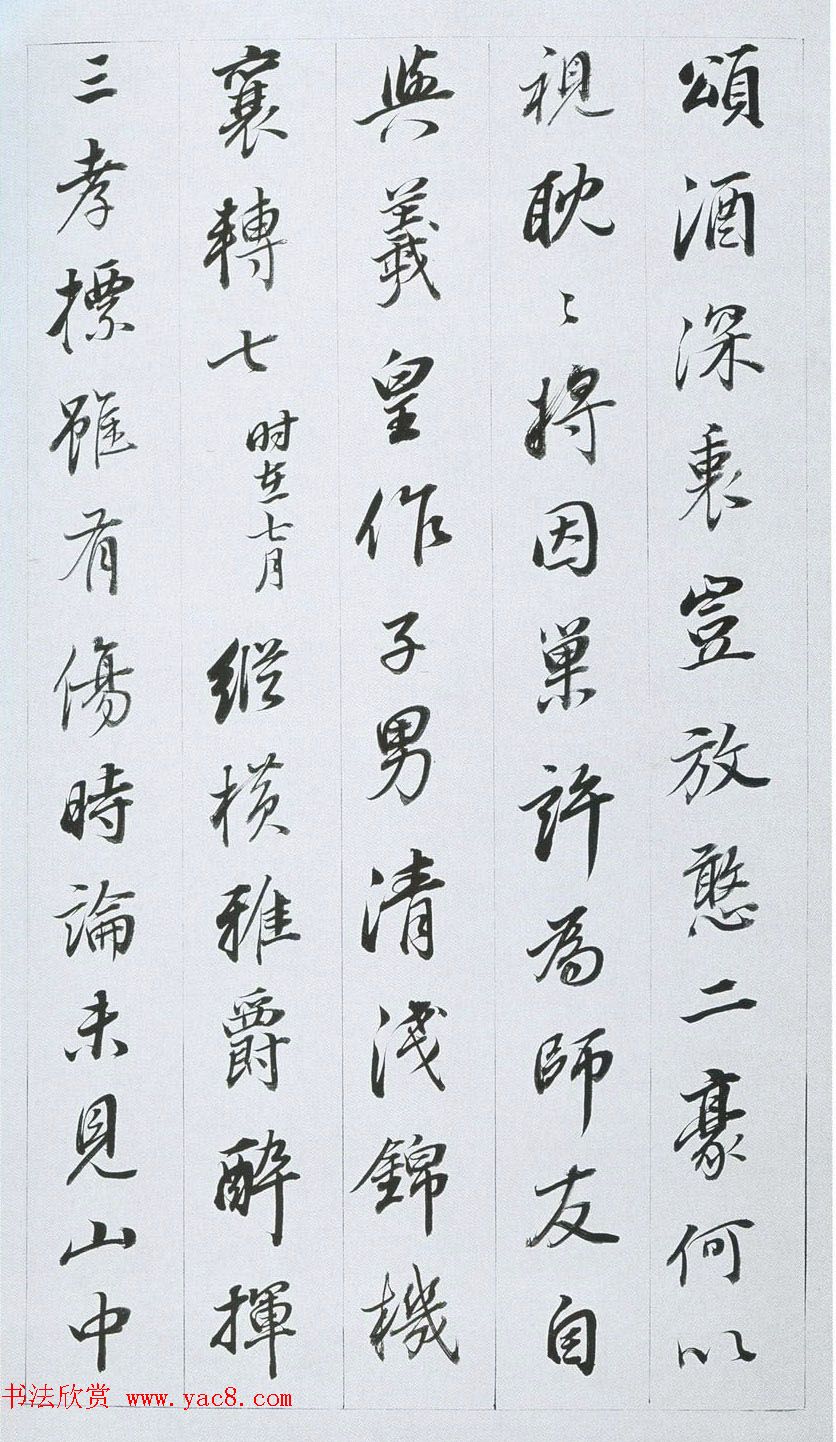 頌酒深衷豈放憨二豪何以
視耽〻將因巢許為師友自
與羲皇作子男清淺錦機
襄轉七时在七月縱橫雅爵醉揮
三孝標雖有傷時論未見山中
书法欣赏 www.yac8.com